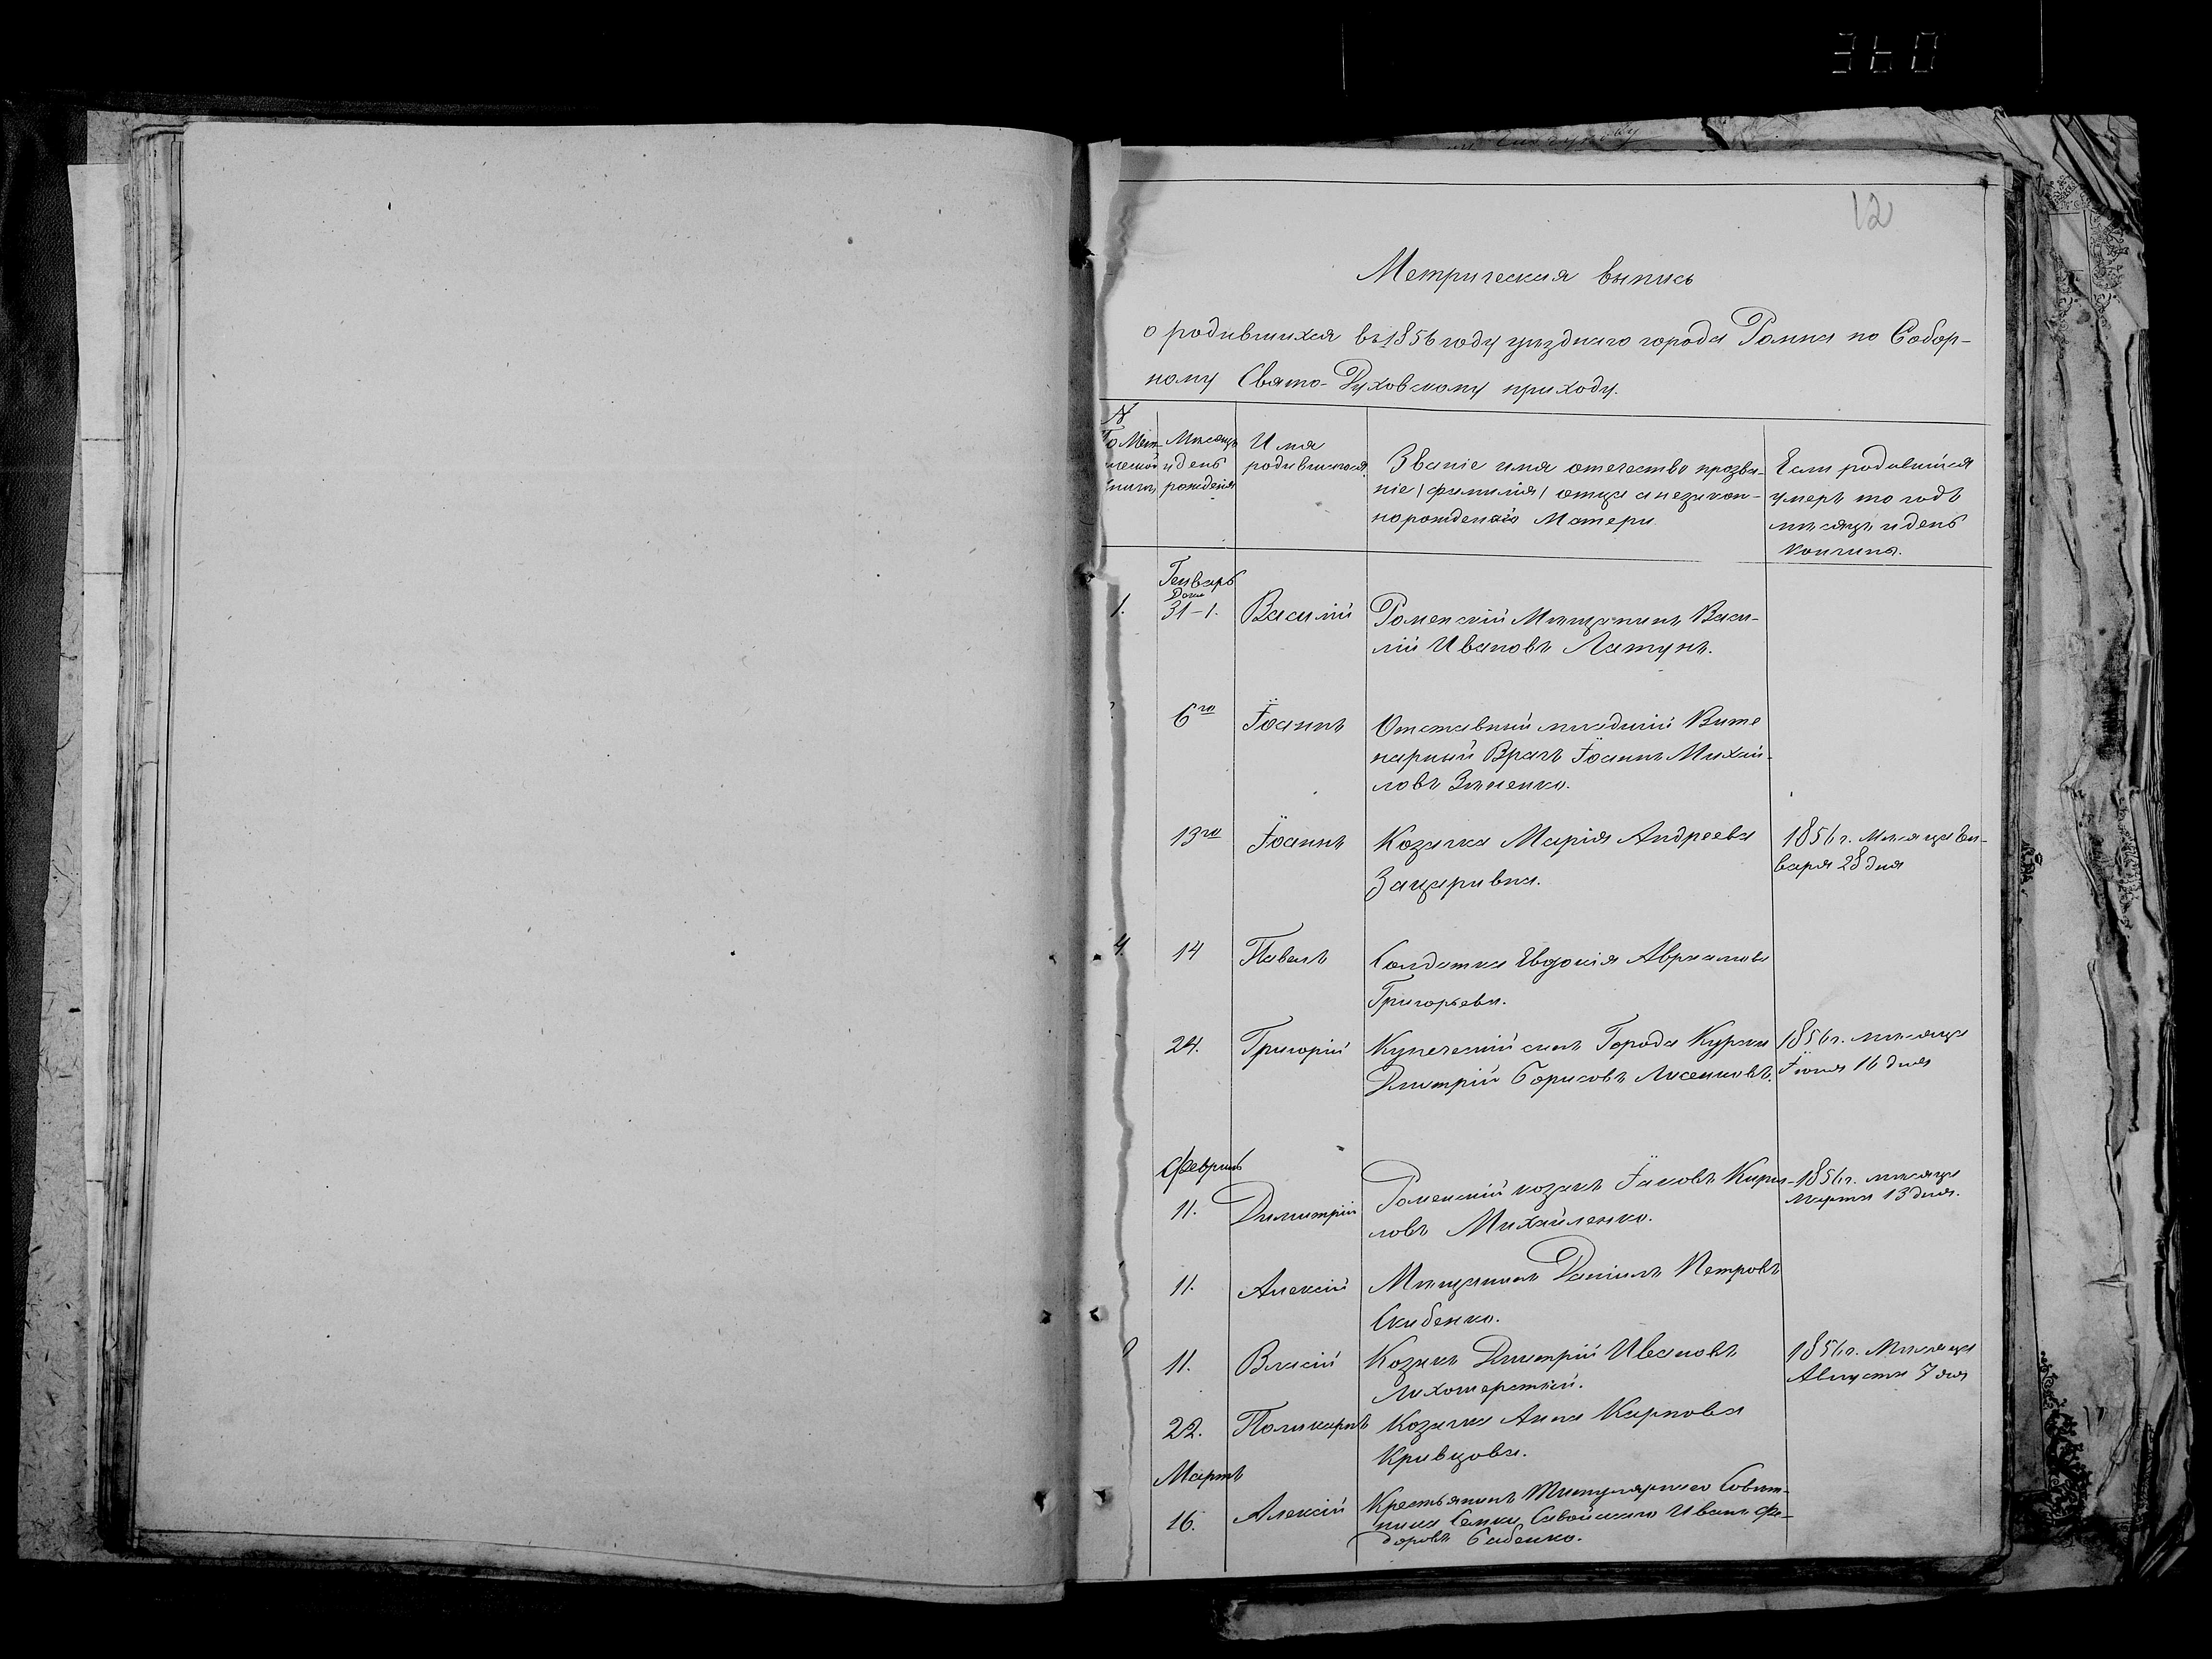 360
12
Метрическая выпись
о родившихся въ 1856 году уѣзднаго города Ромна по Собор-
ному Свято-Духовскому приходу.
N
Мѣсяцъ и день рожденія
Имя родившагося
Званіе имя отечество прозва-
ніе /фамилія/ отца а незакон-
норожденнаго Матери.
Если родившійся
умеръ то годъ
мѣсяцъ и день
кончины.
Генварь
1. 31-1. Василій Роменскій Мѣщанинъ Васи-
лій Ивановъ Латунъ.
6го Іоаннъ Отставный младшій Вите
нарный Врачъ Іоаннъ Михай-
ловъ Зѣненко.
13го Іоаннъ Козачка Марія Андреева 1856 г. Мѣсяца Ен-
Зацаривна. варя 28 дня
4. 14 Павелъ Солдатка Евдокія Авраамова
Григорьева.
24. Григорій Купеческій сынъ Города Курска 1856 г. мѣсяца
Дмитрій Борисовъ Лисенковъ. 16 дня
Февраль
11. Димитрій Роменскій козакъ Іаковъ Кири- 1856 г. мѣсяца
ловъ Михайленко. Марта 13 дня.
11. Алексій Мѣщанинъ Даніилъ Петровъ
Скибенко.
11. Власій Козакъ Дмитрій Ивановъ 1856 г. Мѣсяца
Лихошерстый. Августа 7 дня
22. Поликарпъ Козачка Анна Карпова
Кривцова.
Мартъ
16. Алексій Крестьянинъ Титулярнаго Совѣт-
ника Савойскаго Иванъ Фе-
доровъ Бабенко.